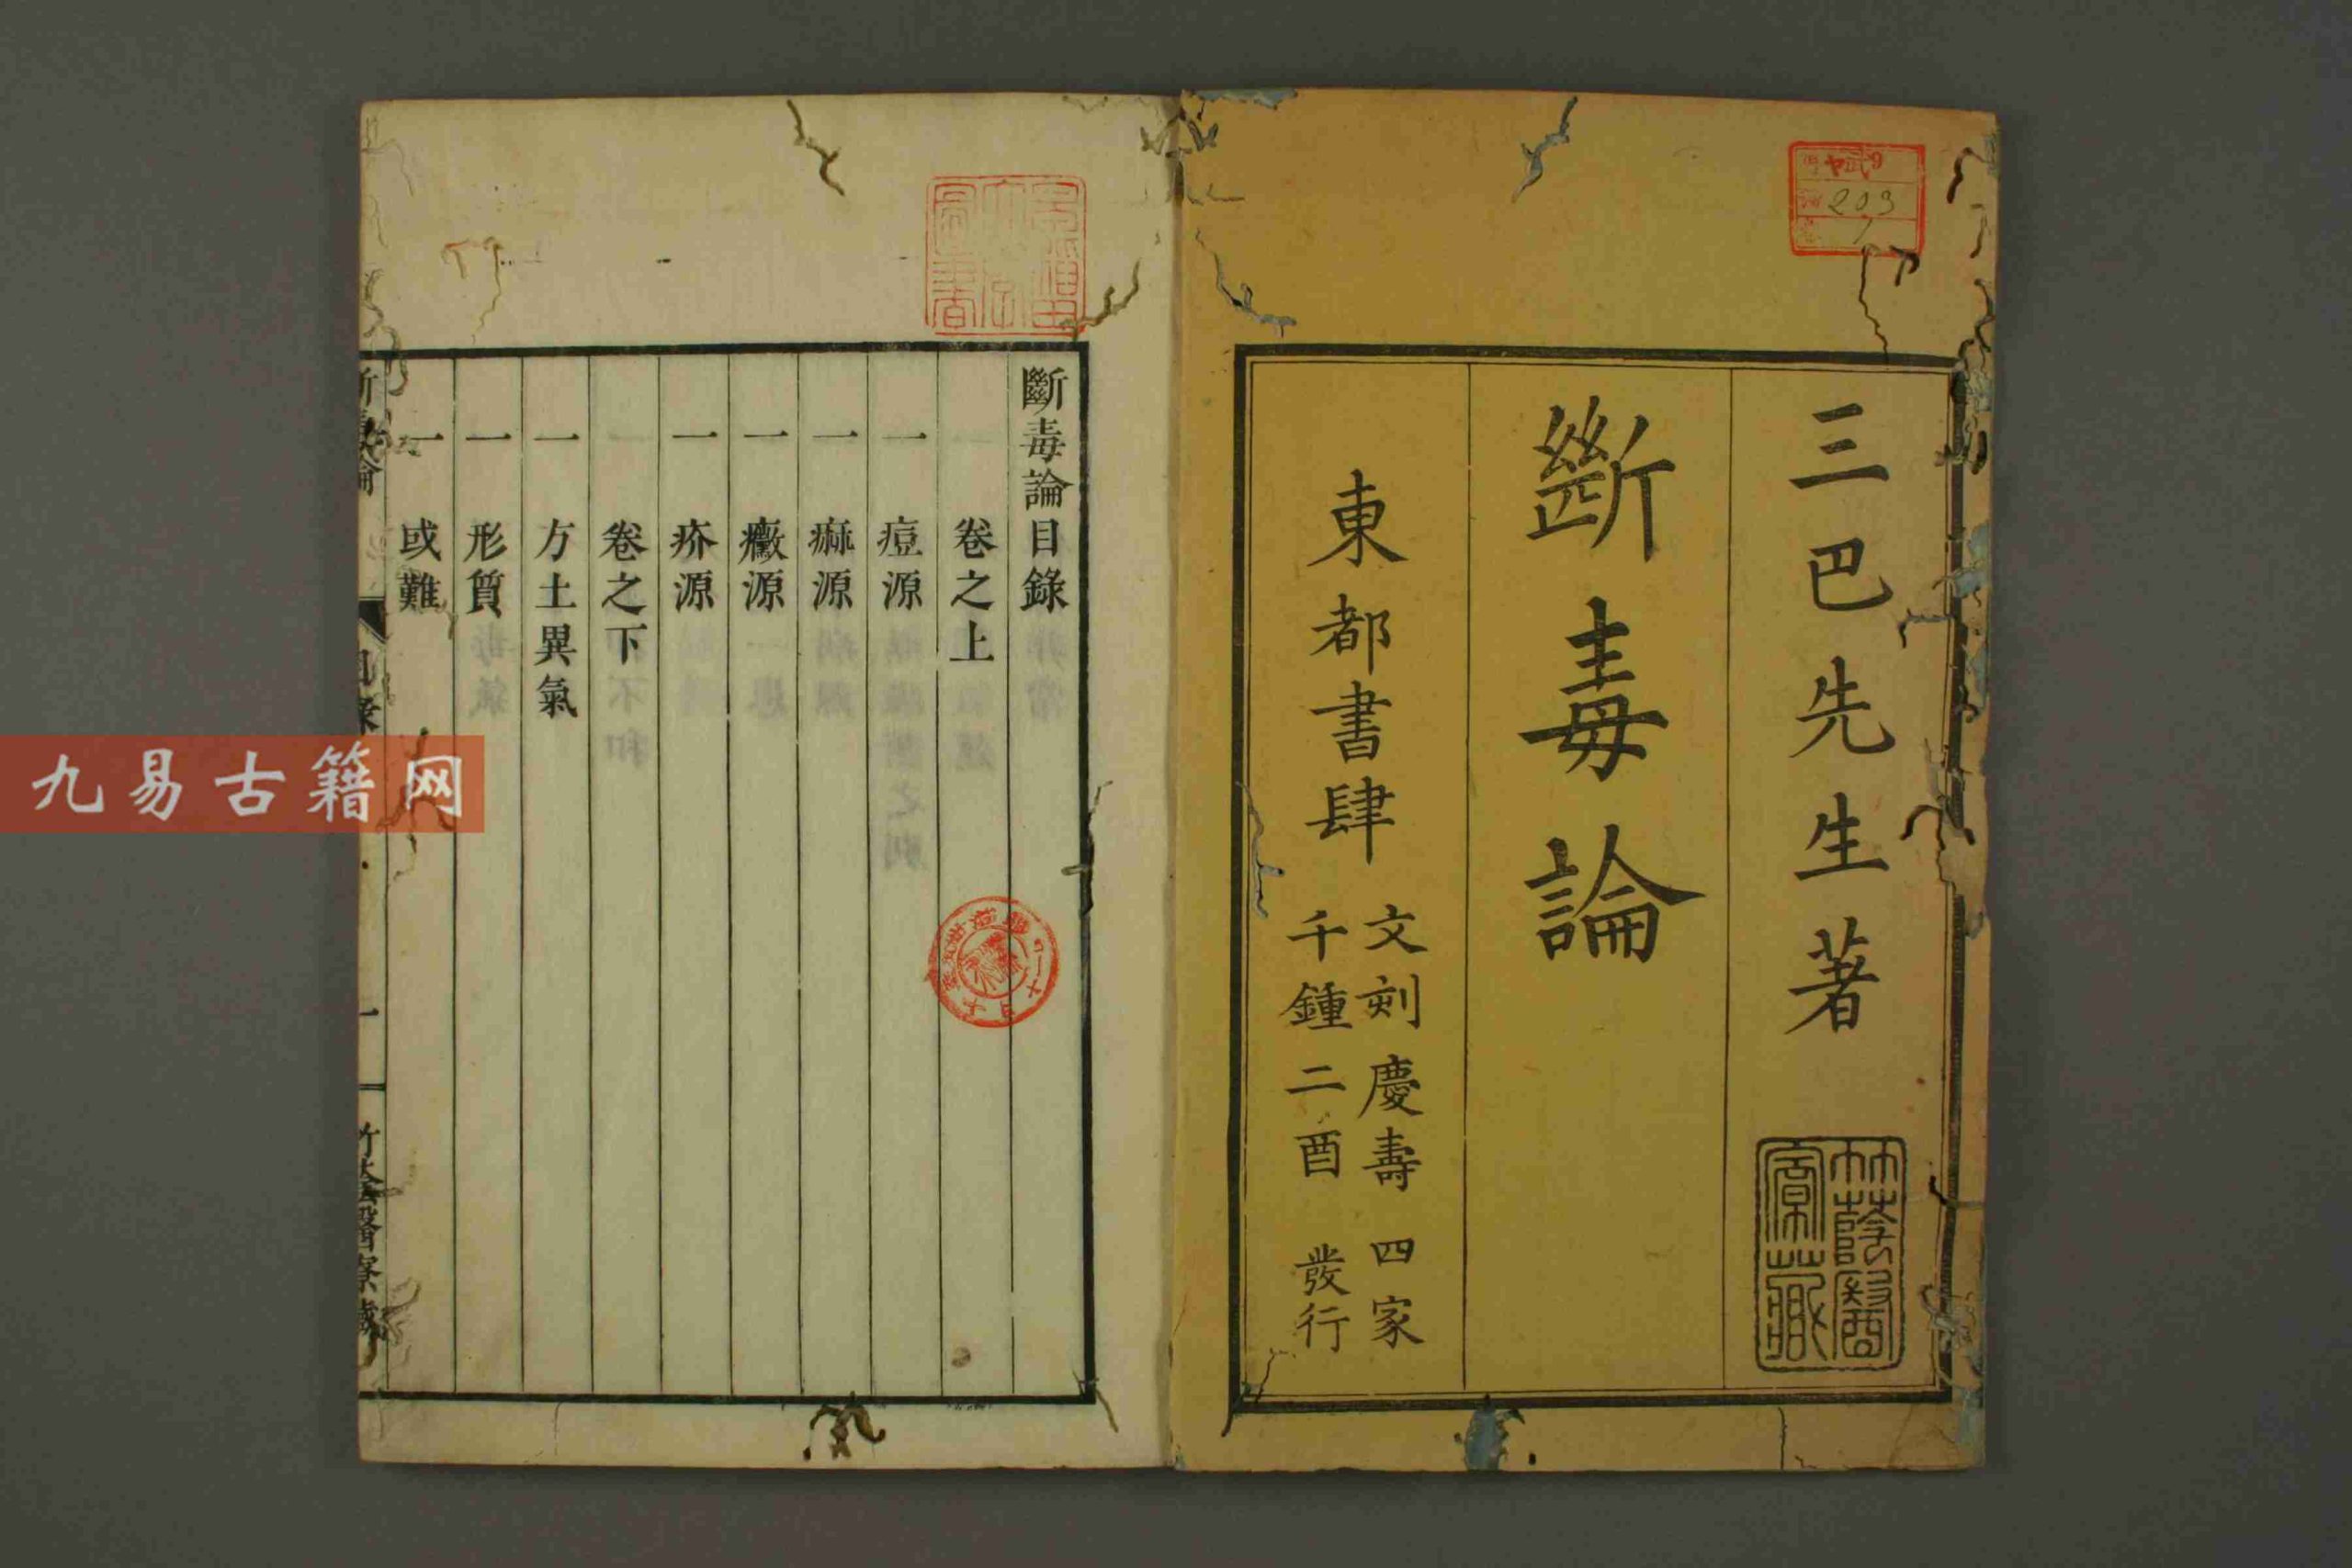 三巴先生著
斷毒論
東都書肆
文刻 慶壽 四家
千鍾 二酉 發行
斷毒論目錄
卷之上
一 痘源
一 痳源
一 黴源
一 疥源
卷之下
一 方土異氣
一 形質
一 或難
早稻田大學圖書
九易古籍网